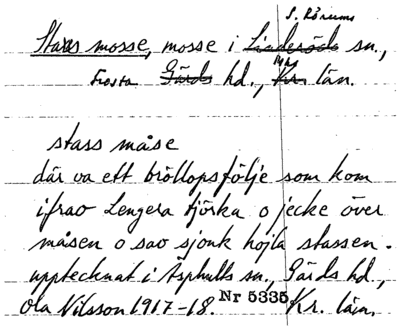 S. Rörums
Stass mosse, mosse i Linderöds sn.,
Mhs
Frosta Gärds hd., Kr. län.
stass måse
där va ett bröllopsfölje som kom
ifrao Lengera tjörka o jecke över
måsen o sao sjonk hojla stassen.
upptecknat i Äsphults sn., Gärds hd.,
Ola Nilsson 1917-18. Nr 5335 Kr. län.